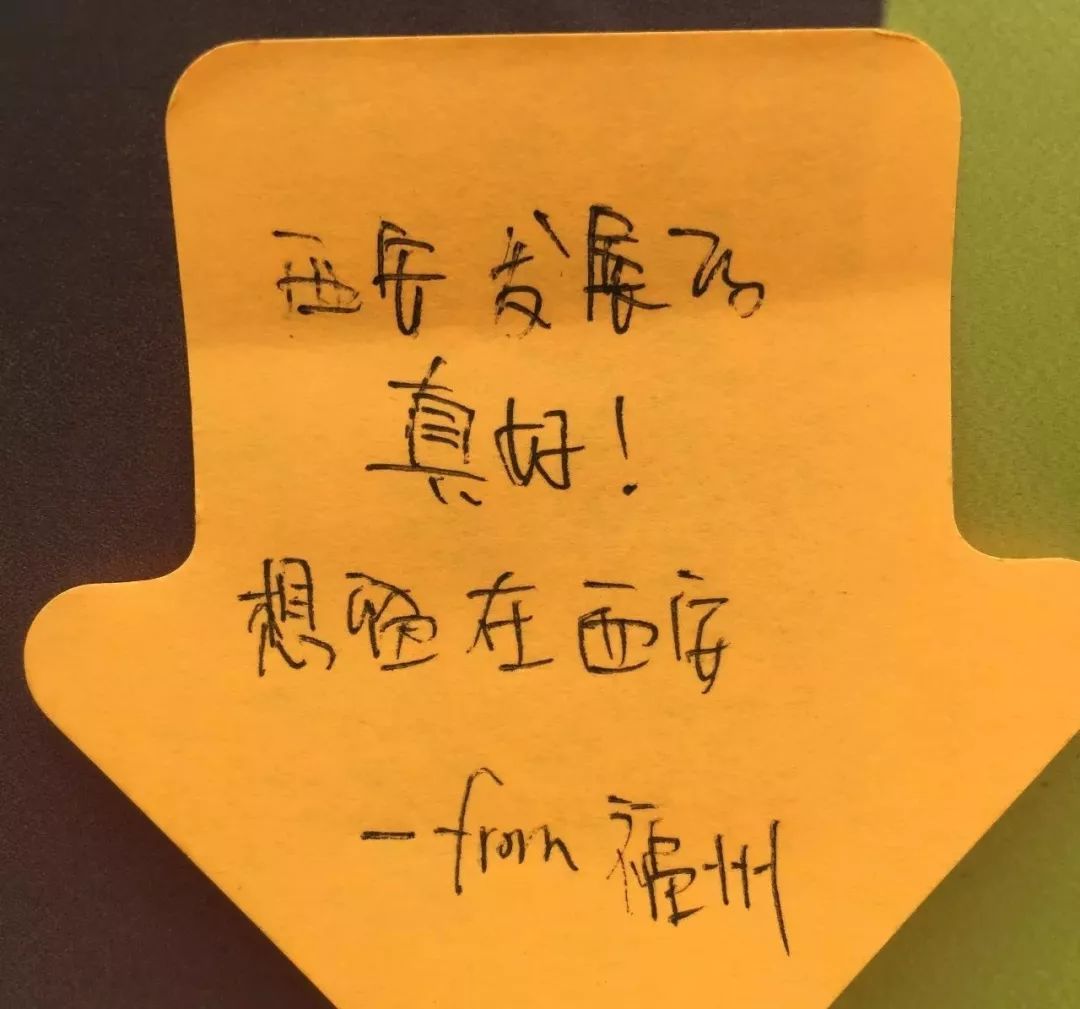 西安发展了
真好！
想留在西安
-from 福州